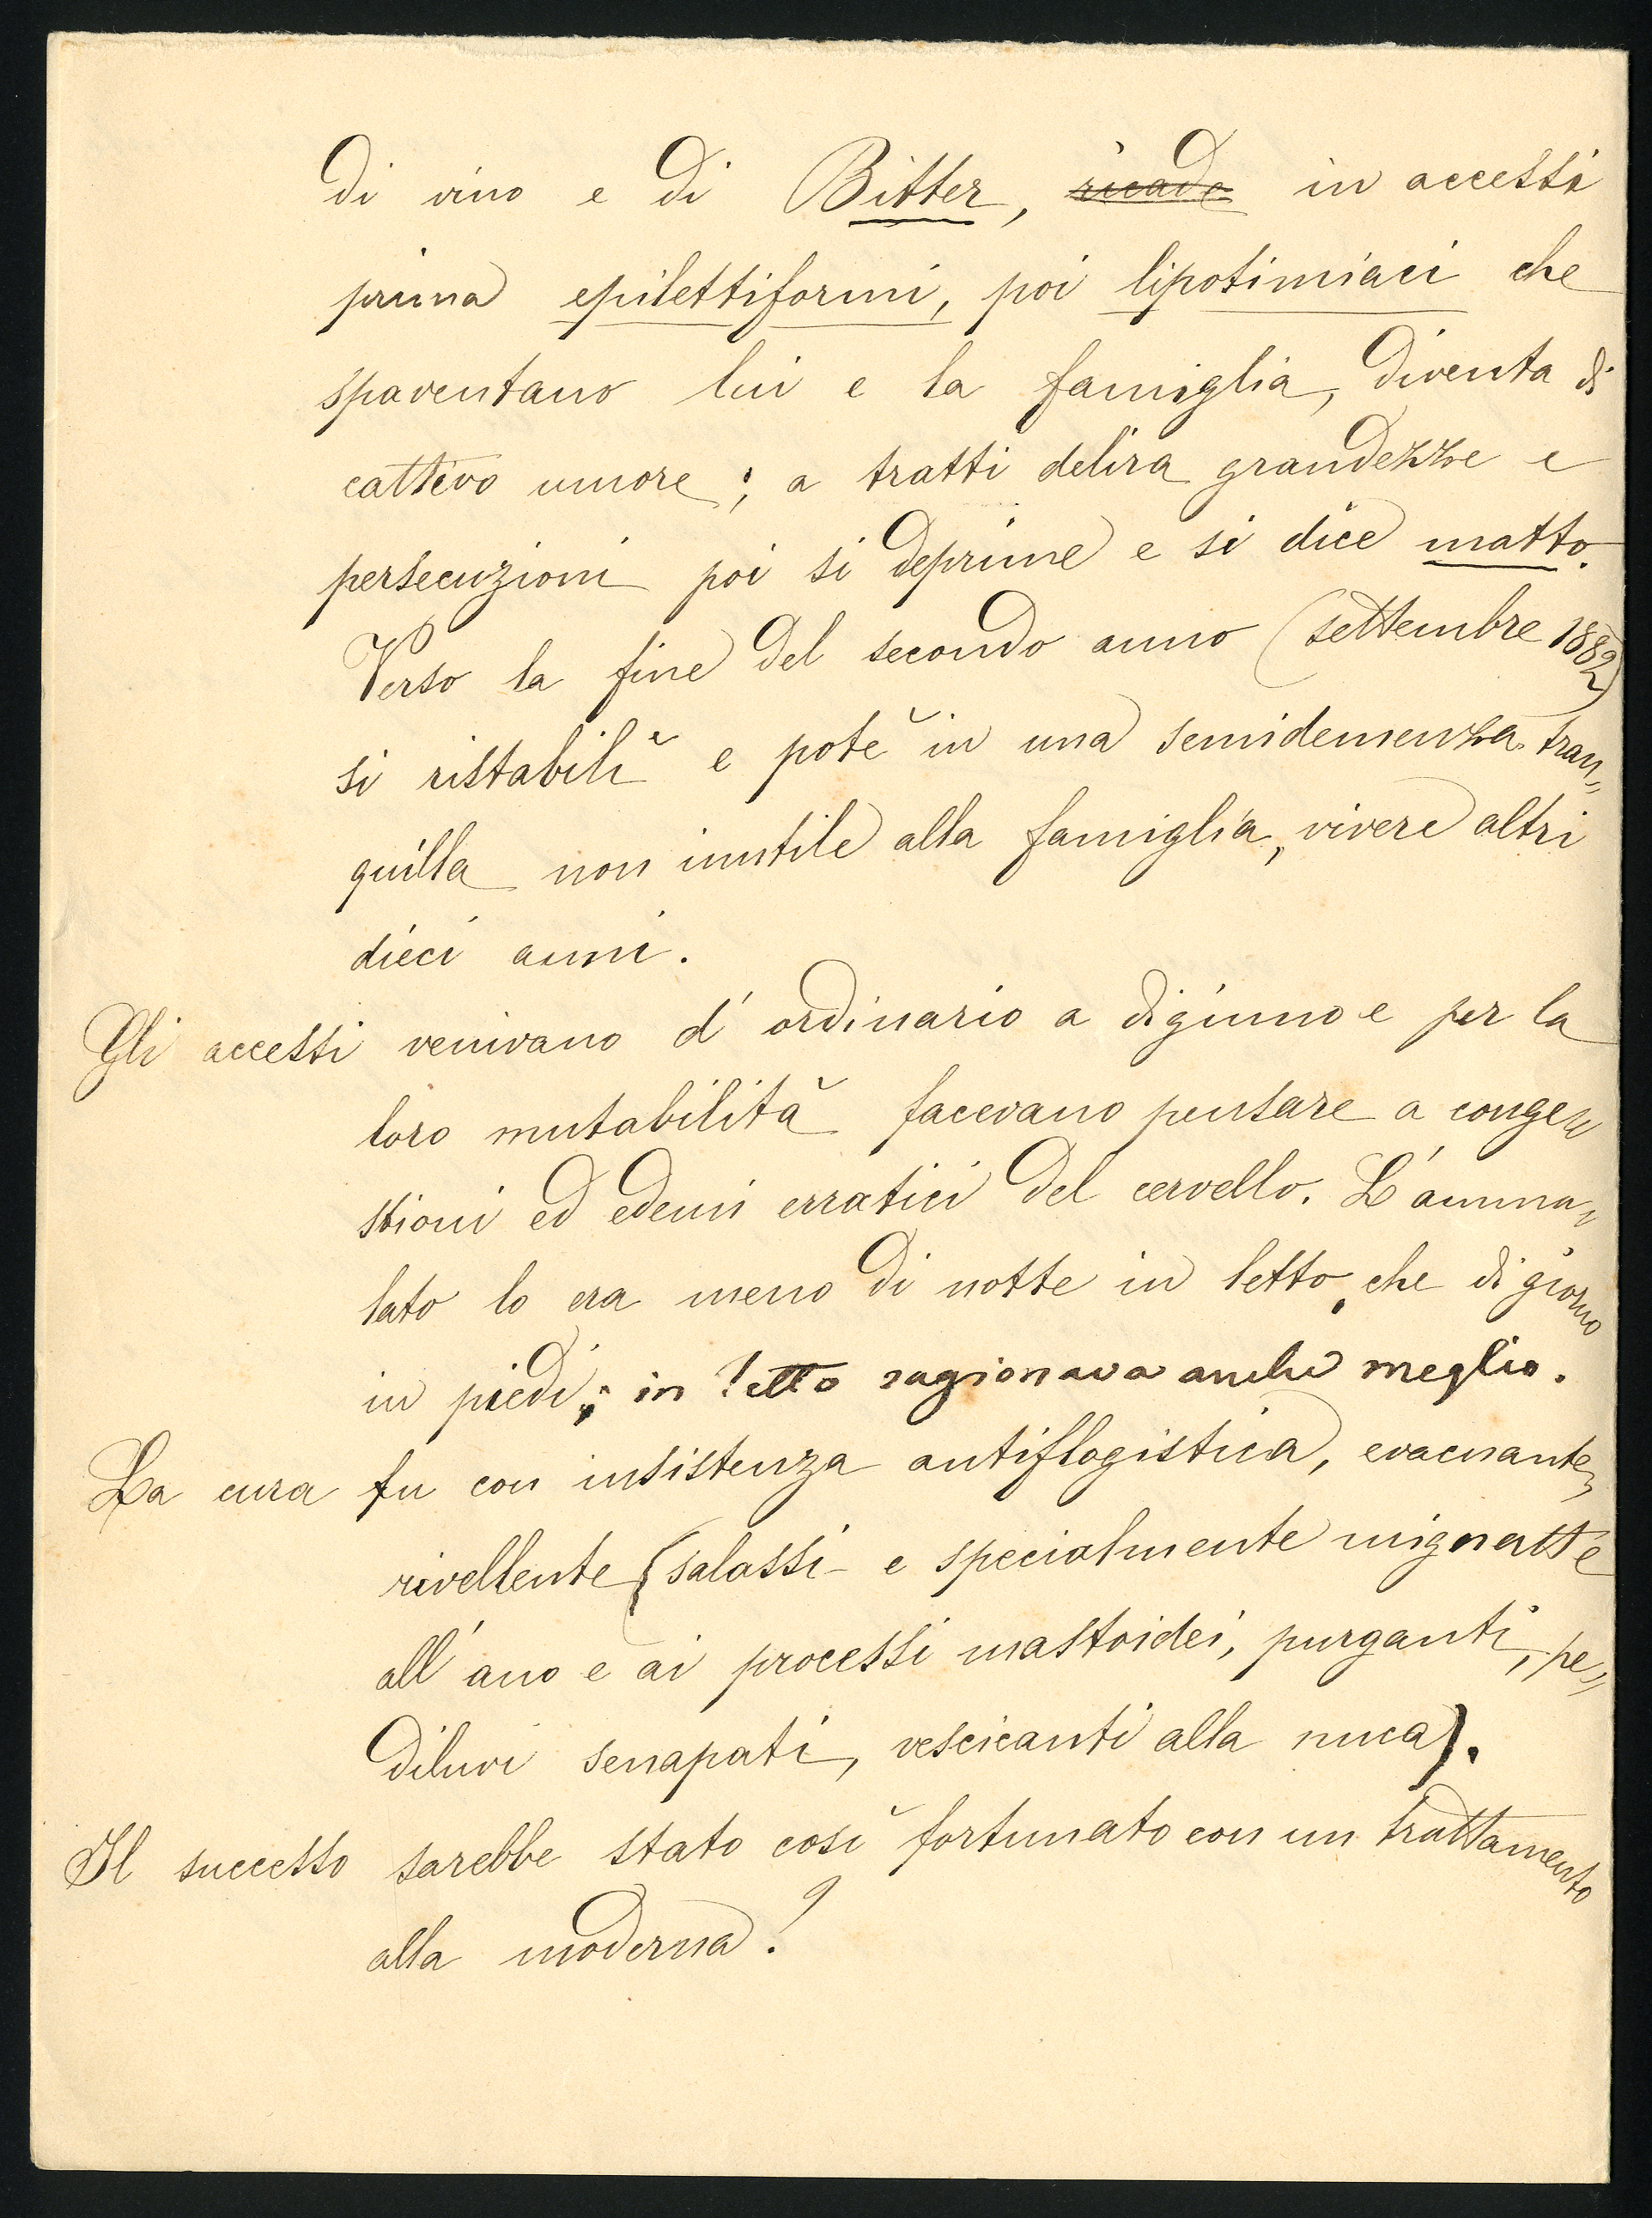 di vino e di Bitter, ricade in accessi
prima epilettiformi, poi lipotimiaci che
spaventano lui e la famiglia, diventa di
cattivo umore; a tratti delira grandezze e
persecuzioni poi si deprime e si dice matto.
Verso la fine del secondo anno (settembre 1882)
si ristabilì e potè in una semidemenza tran-
quilla non inutile alla famiglia, vivere altri
dieci anni.
Gli accessi venivano d'ordinario a digiuno e per la
loro mutabilità facevano pensare a conge-
stioni ed edemi erratici del cervello. L'amma-
lato lo era meno di notte in letto, che di giorno
in piedi; in letto ragionava anche meglio.
La cura fu con insistenza antiflogistica, evacuante,
rivellente (salassi e specialmente mignatte
all'ano e ai processi mastoidei, purganti, pe-
diluvi senapati, vescicanti alla nuca).
Il successo sarebbe stato così fortunato con un trattamento
alla moderna?